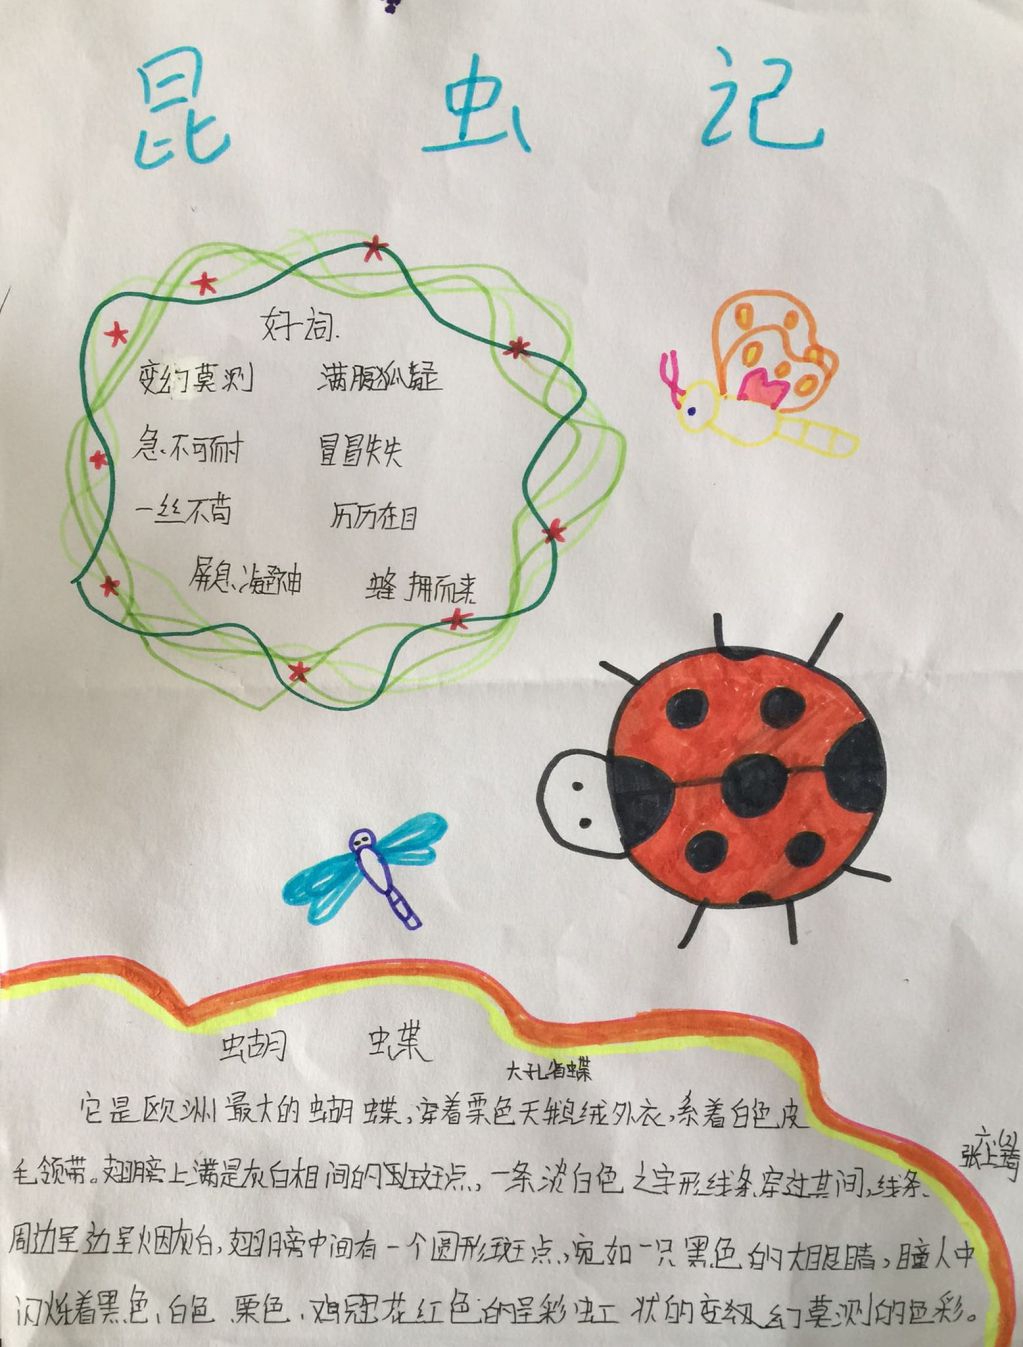 昆虫记
好词.
变幻莫测 满腹狐疑
急不可耐 冒冒失失
一丝不苟 历历在目
屏息凝神 蜂拥而来
蝴 蝶
大孔雀蝶
它是欧洲最大的蝴蝶,穿着栗色天鹅绒外衣,系着白色皮
毛领带。翅膀上满是灰白相间的斑点,一条淡白色之字形线条穿过其间,线条
周边呈边呈烟灰白,翅膀中间有一个圆形斑点,宛如一只黑色的大眼睛,瞳人中
闪烁着黑色、白色 栗色、鸡冠花红色的呈彩虹状的变幻莫测的色彩。
六(2)